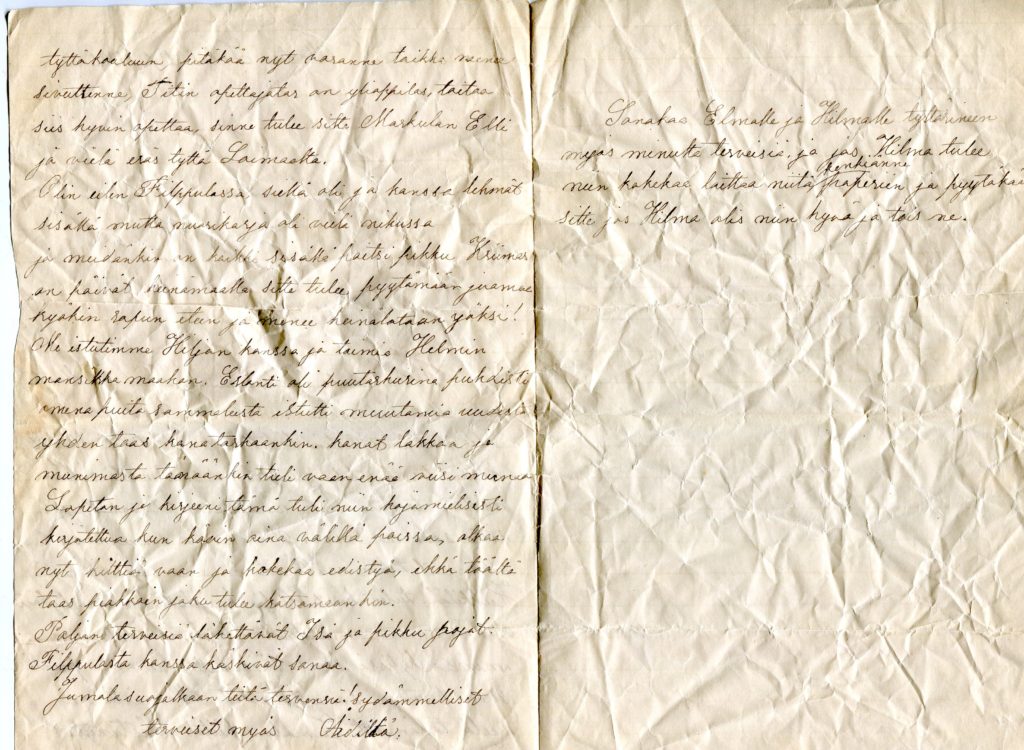 tyttökouluun pitäkää nyt varanne taikka menee
sivuttenne, Titin opettajatar on ylioppilas, taitaa
siis hyvin opettaa, sinne tulee sitte Markulan Elli
ja vielä eräs tyttö Loimaalta.
Olin eilen Filppulassa, siellä oli jo kanssa lehmät
sisällä mutta nuorikarja oli vielä
ja meidänkin on kaikki sisällä paitsi pikku
on päivät heinämaalla sitte tulee pyytämään juomaa
kyökin rapun eteen ja menee heinälatoon yöksi!
Me istutimme Hiljan kanssa jo taimia Helmin
mansikkamaahan. Eslanti oli puutarhurina puhdisti
omenapuita sammaleista istutti muutamia uudista
yhden taas kanatarhaankin. kanat lakkaa jo
munimasta tänäänkin tuli vaan enää viisi munaa
Lopetan jo kirjeeni tämä tuli niin hajamielisesti
kirjotettua kun kävin aina välillä poissa, olkaa
nyt kilttiä vaan ja kokekaa edistyä, ehkä täältä
taas piakkoin joku tulee katsomaankin.
Paljon terveisiä lähettävät Isä ja pikku pojat.
Filppulasta kanssa käskivät sanoa.
Jumala suojelkaan teitä terveinä! sydämmelliset
terveiset myös Äidiltä.
Sanokaa Elmalle ja Hilmalle tyttärineen
myös minulta terveisiä, ja jos Hilma tulee
niin kokekaa laittaa niitä kenkiänne paperiin ja pyytäkää
sitte jos Hilma olis niin hyvä ja tois ne.